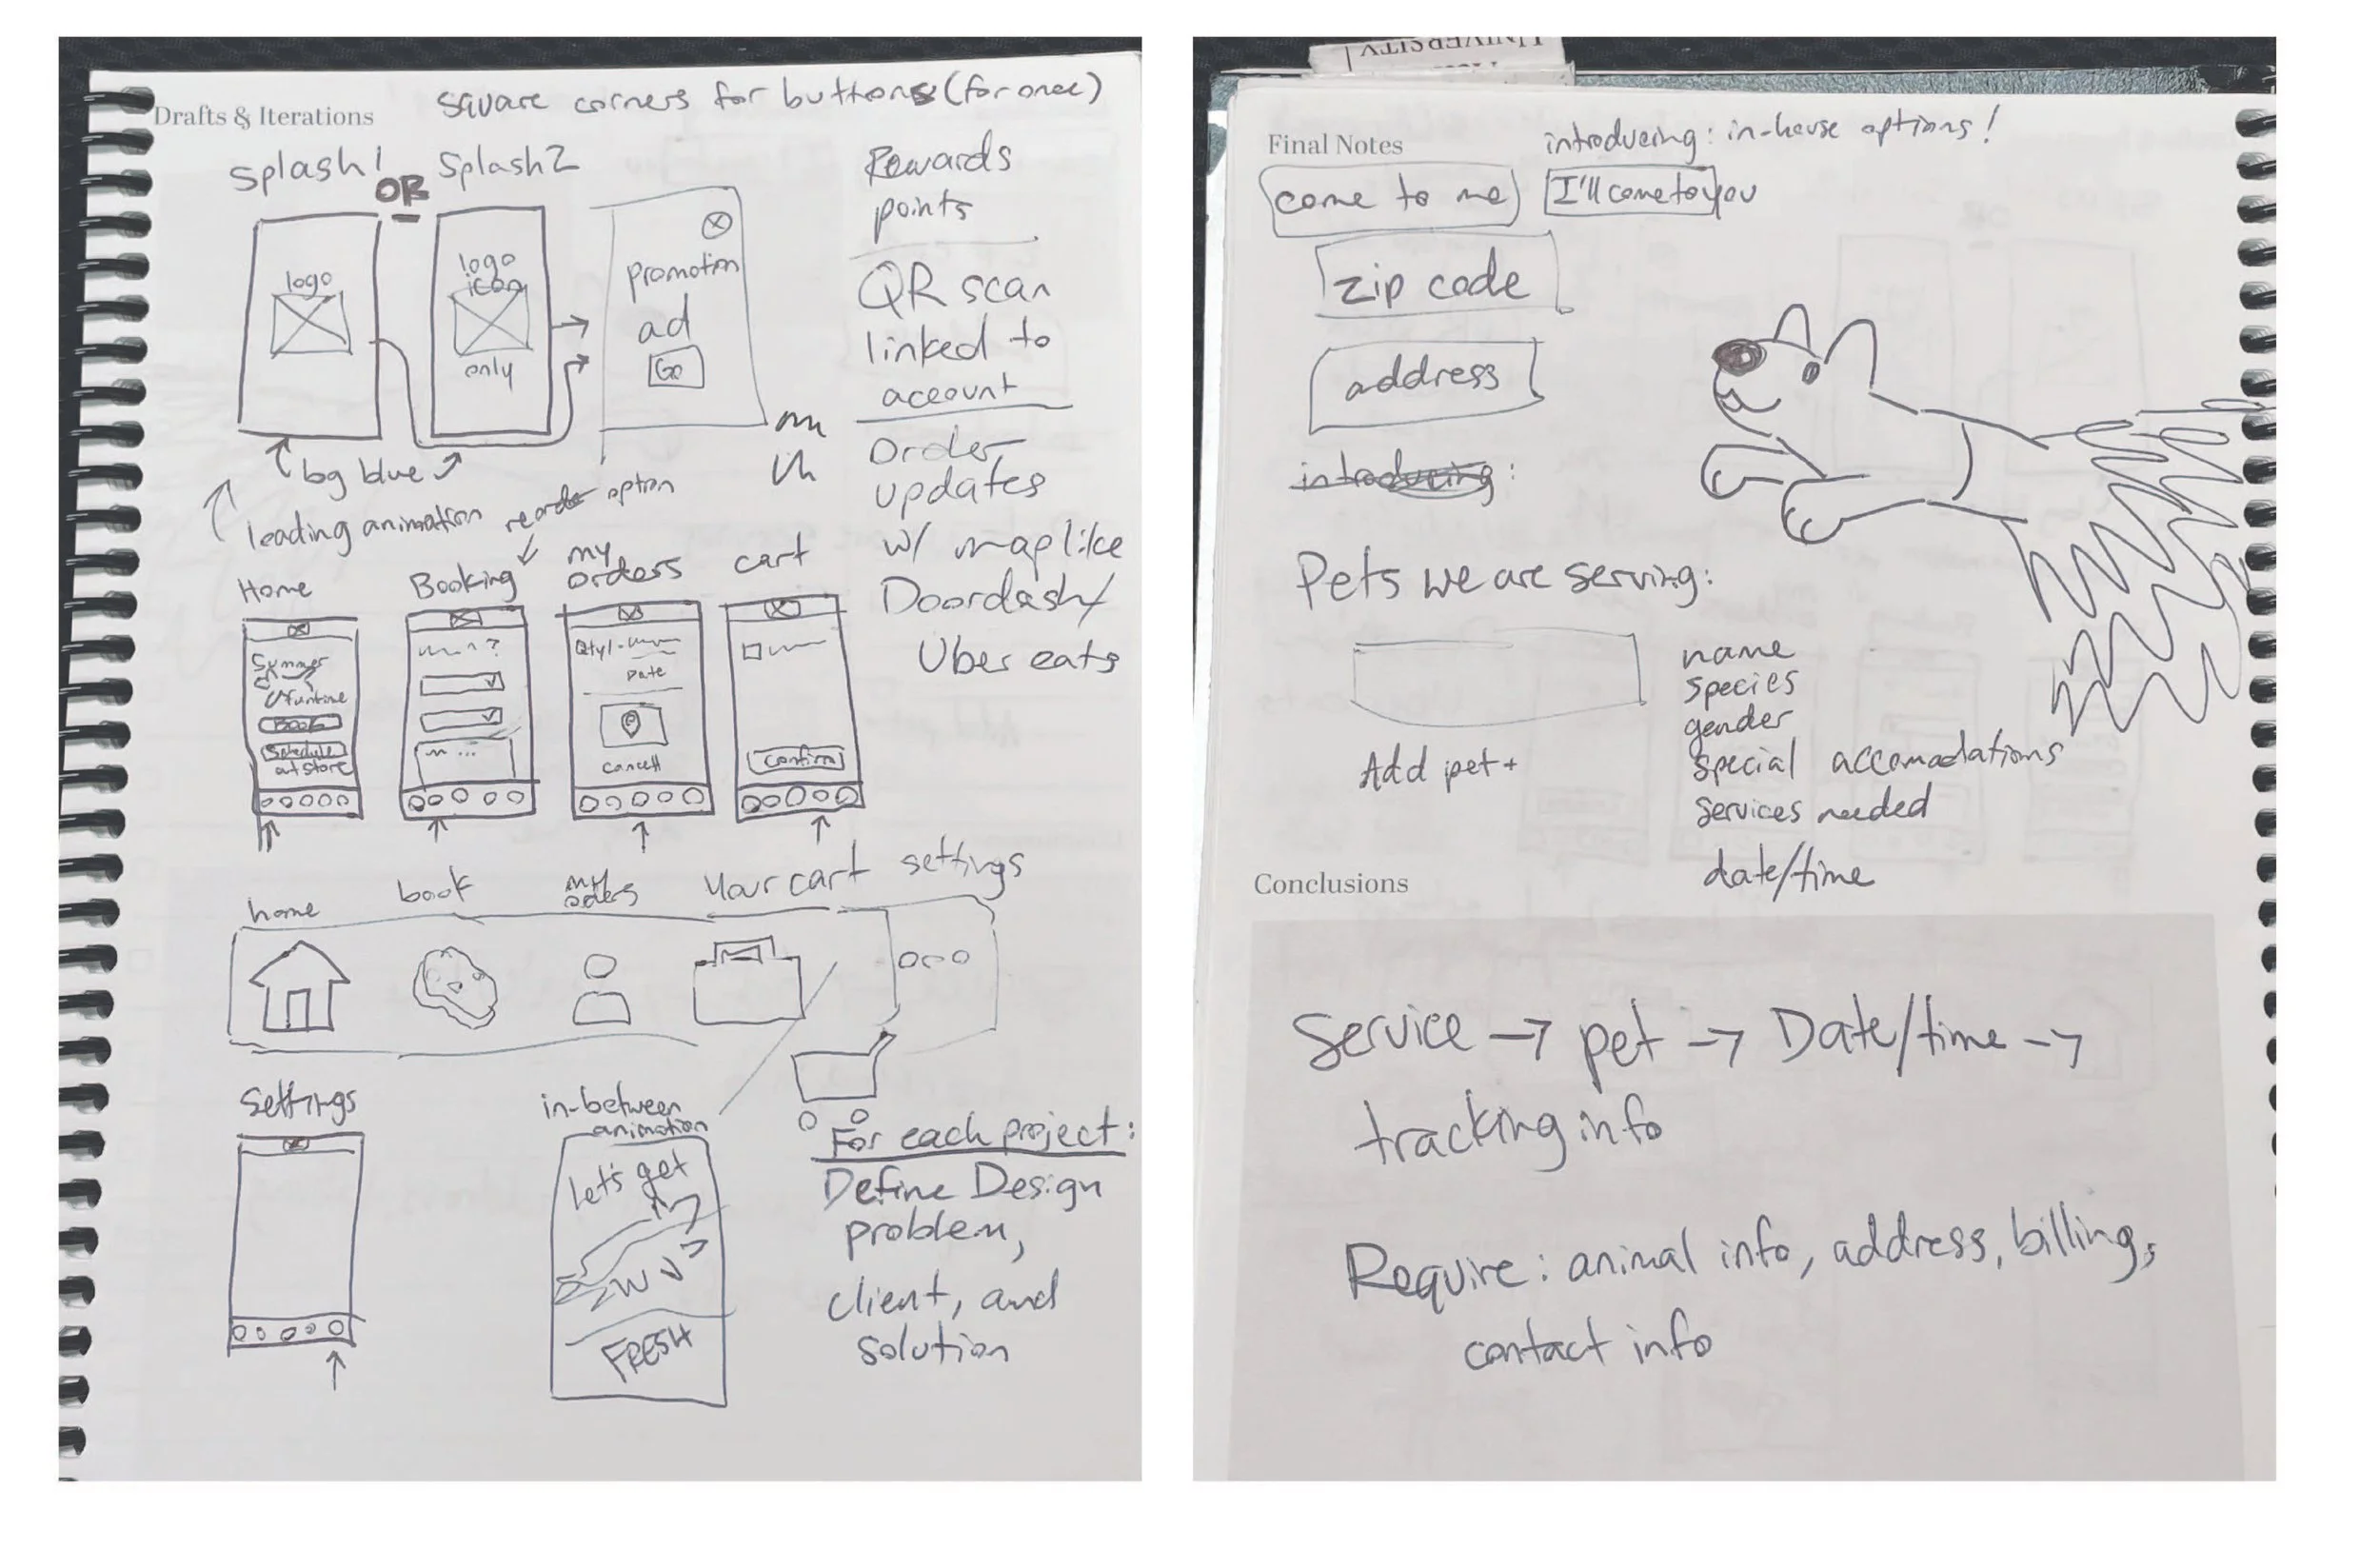 UNIVERSITY
Drafts & Iterations
square corners for buttons (for once)
Splash 1
OR
Splash 2
logo
logo
icon
only
promotion
ad
Go
bg blue
loading animation
reorder option
Rewards
points
QR scan
linked to
account
Order
updates
w/ map like
Doordash/
Uber eats
Home
Booking
my
orders
cart
Summer
funtime
Book
Schedule
at store
?
...
Qty 1 -
Date
Cancel
Confirm
home
book
my
orders
Your cart
settings
Settings
in-between
animation
Let's get
FRESH
For each project:
Define Design
problem,
client, and
solution
Final Notes
introducing: in-house options!
come to me
I'll come to you
zip code
address
introducing:
Pets we are serving:
Add pet +
name
species
gender
special accomodations
services needed
date/time
Conclusions
Service → pet → Date/time →
tracking info
Require: animal info, address, billing,
contact info